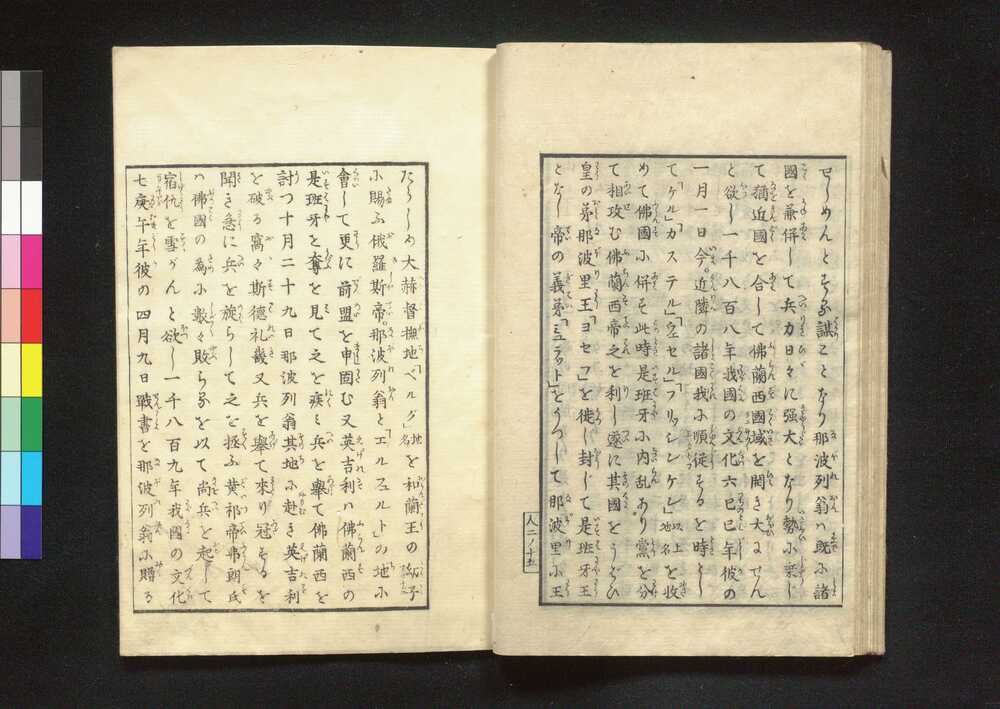 せしめんとする謀ことなり那波列翁ハ既に諸
國を兼併して兵力日々に强大となり勢に乘じ
て猶近國を合して佛蘭西國域を開き大にせん
と欲し一千八百八年我國の文化六己巳年彼の
一月一日今。近隣の諸國我に順從するを時とし
て「ケル」「カステル」「ウェセル」「フリッシンゲレ」以上地名を收
めて佛國に併そ此時是班牙に内乱あり黨を分
て相攻む佛蘭西帝之を利し遂に其國をうばひ
皇の弟那波里王「ヨセフ」を徙し封じて是班牙王
となし帝の義弟「ミュラット」をうつして那波里に王
人二ノ十五
たらしめ大赫督撫地「ベルグ」地名を和蘭王の幼子
に賜ふ俄羅斯帝。那波列翁と「エルフルト」の地に
會して更に前盟を申固む又英吉利ハ佛蘭西の
是班牙を奪を見て之を疾ミ兵を舉て佛蘭西を
討つ十月二十九日那波列翁其地に赴き英吉利
を破る窩々斯德礼畿又兵を舉て來り冦するを
聞き急に兵を旋らして之を拯ふ黄祁帝弗朗氏
ハ佛國の為に數々敗らるを以て尚兵を起して
宿仇を雪がんと欲し一千八百九年我國の文化
七庚午年彼の四月九日戰書を那波列翁に贈る